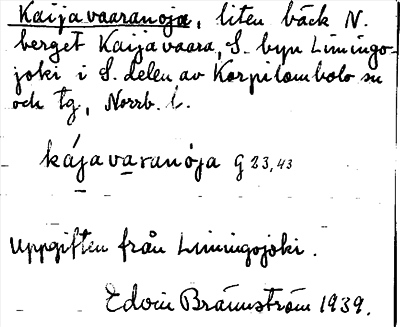 Kaijavaaranoja, liten bäck N.
berget Kaijavaara, S. byn Limingo-
joki i S. delen av Korpilombolo sn
och tg, Norrb. l.
kájavaranòja G 23,43
Uppgiften från Limingojoki.
Edvin Brännström 1939.